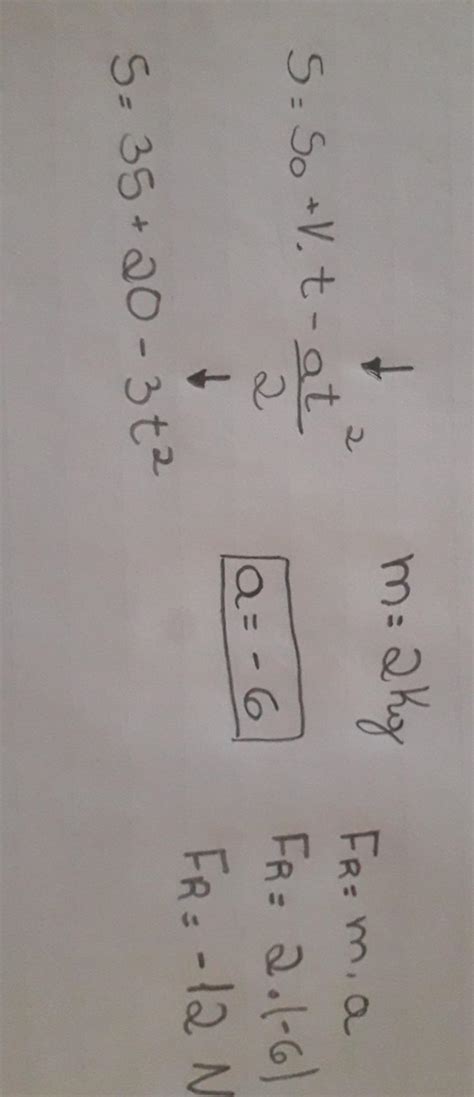 S = S₀ + V. t - at²/2
S = 35 + 20 - 3t²
m = 2Kg
a = - 6
FR = m . a
FR = 2 . (-6)
FR = -12 N